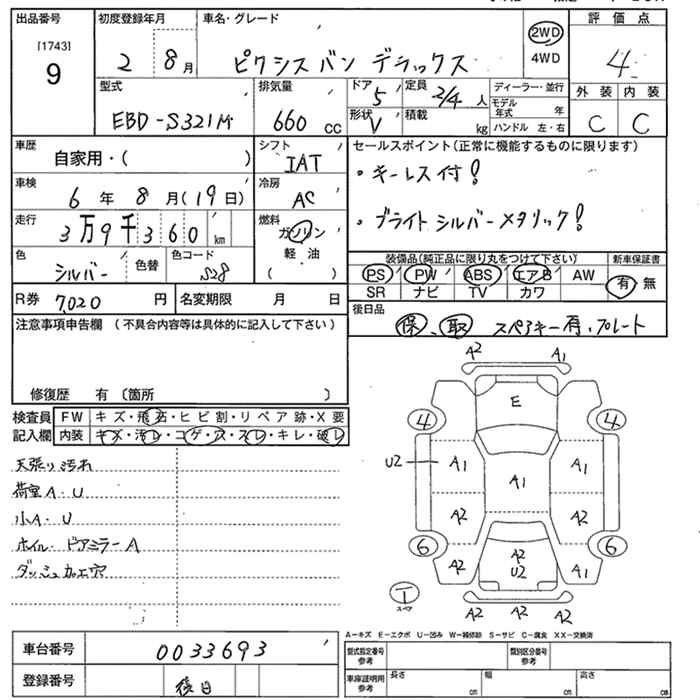 出品番号 初度登録年月 車名・グレード 2WD 評価点
[1743]
9 2 8月 ピクシス バン デラックス 4WD 4
型式 排気量 ドア 5 定員 2/4人 ディーラー・並行 外装 内装
EBD-S321M 660cc 形状 V 積載 kg モデル年式 年 C C
ハンドル 左・右
車歴 自家用・( ) シフト IAT セールスポイント(正常に機能するものに限ります)
車検 6年 8月(19日) 冷房 AC ・キーレス付!
走行 3万9千360km 燃料 ガソリン ・ブライト シルバーメタリック!
軽油
( )
色 シルバー 色替 色コード S28 装備品(純正品に限り丸をつけて下さい) 新車保証書
PS PW ABS エアB AW 有 無
SR ナビ TV カワ
R券 7,020円 名変期限 月 日
後日品 保、取 スペアキー有、プレート
注意事項申告欄 (不具合内容等は具体的に記入して下さい)
修復歴 有 〔箇所 〕
検査員記入欄 FW キズ・飛石・ヒビ割・リペア跡・X要
内装 キズ・汚レ・コゲ・穴・スレ・キレ・破レ
天張り汚れ
荷室A・U
小A・U
ホイル・ドアミラーA
ダッシュ加工穴
A2 A1
E
4 4
U2 A1 A1 A1
A2 A2
6 6
A2 A2 U2 A1
1 スペア
A2 A2 A2
A-キズ E-エクボ U-凹み W-補修跡 S-サビ C-腐食 XX-交換済
車台番号 0033693
登録番号 後日
型式指定番号 参考 類別区分番号 参考
車庫証明用 参考 長さ cm 幅 cm 高さ cm